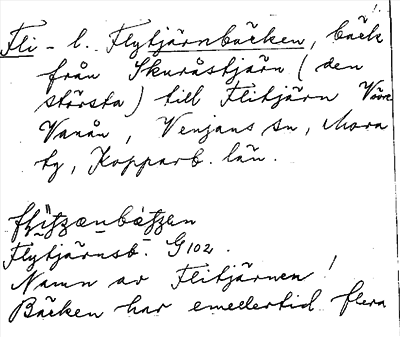 Fli- l. Flytjärnbäcken, bäck
från Skuråstjärn (den
största) till Flitjärn
Vanån, Venjans sn, Mora
tg, Kopparb. län.
Flytjärnsb. G 102.
Namn av Flitjärnen!
Bäcken har emellertid flera